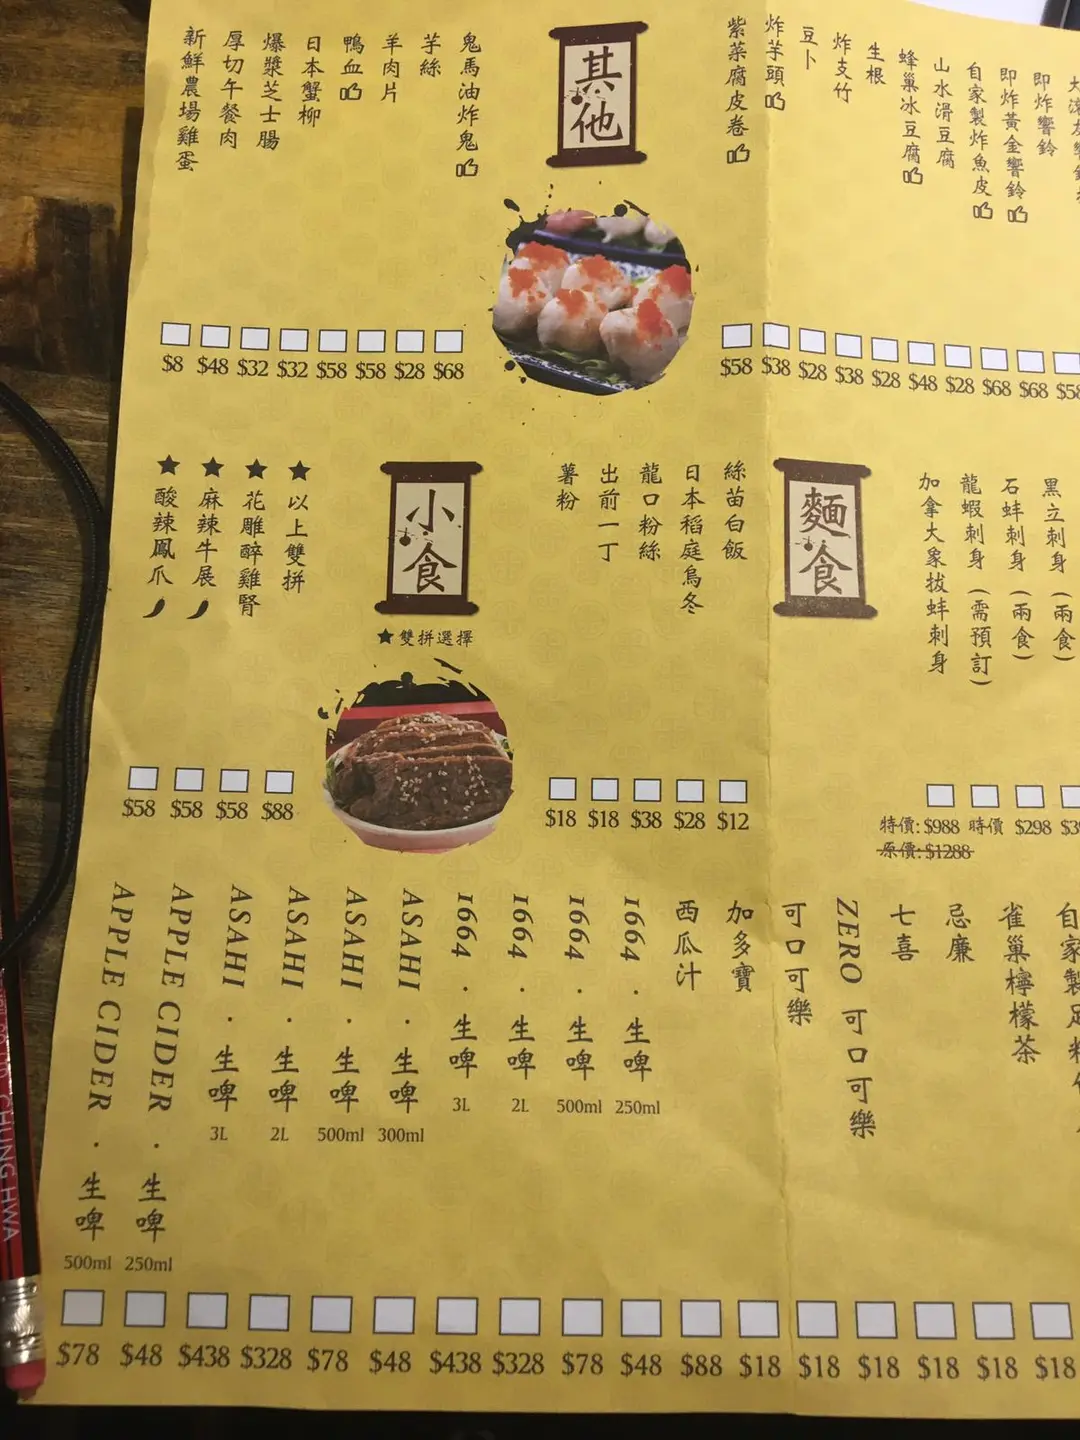 大
即炸響鈴
即炸黃金響鈴
自家製炸魚皮
山水滑豆腐
蜂巢冰豆腐
生根
炸支竹
豆卜
炸芋頭
紫菜腐皮卷
$58 $38 $28 $38 $28 $48 $28 $68 $68 $58
其他
鬼馬油炸鬼
芋絲
羊肉片
鴨血
日本蟹柳
爆漿芝士腸
厚切午餐肉
新鮮農場雞蛋
$8 $48 $32 $32 $58 $58 $28 $68
黑立刺身(兩食)
石蚌刺身(兩食)
龍蝦刺身(需預訂)
加拿大象拔蚌刺身
特價:$988 時價 $298
原價:$1288
麵食
絲苗白飯
日本稻庭烏冬
龍口粉絲
出前一丁
薯粉
$18 $18 $38 $28 $12
小食
★雙拼選擇
★以上雙拼
★花雕醉雞腎
★麻辣牛展
★酸辣鳳爪
$58 $58 $58 $88
自家製足料
雀巢檸檬茶
忌廉
七喜
ZERO 可口可樂
可口可樂
加多寶
西瓜汁
1664 · 生啤 250ml
1664 · 生啤 500ml
1664 · 生啤 2L
1664 · 生啤 3L
ASAHI · 生啤 300ml
ASAHI · 生啤 500ml
ASAHI · 生啤 2L
ASAHI · 生啤 3L
APPLE CIDER · 生啤 250ml
APPLE CIDER · 生啤 500ml
$78 $48 $438 $328 $78 $48 $438 $328 $78 $48 $88 $18 $18 $18 $18 $18 $18
CHUNG HWA